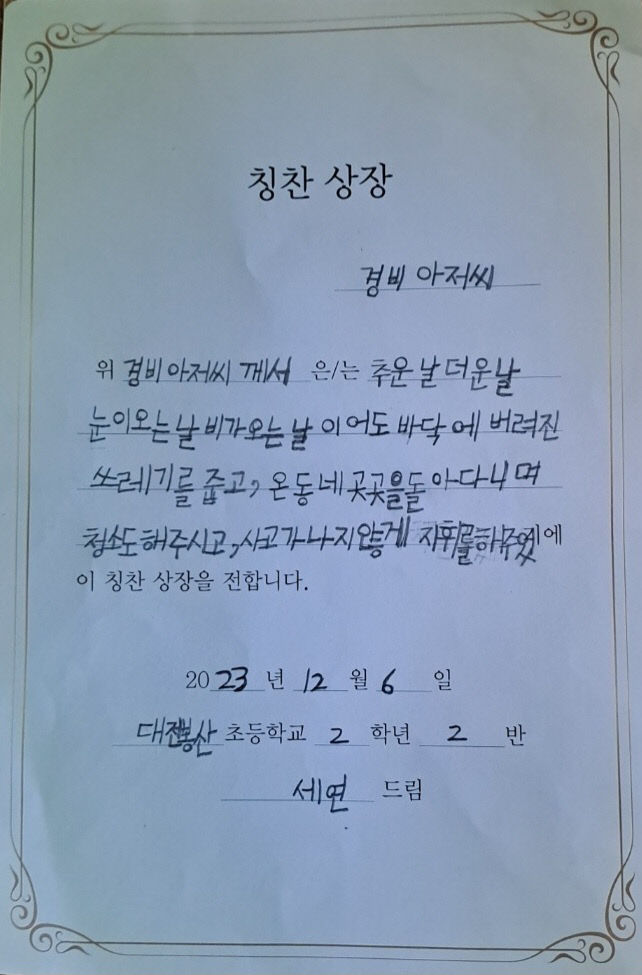 칭찬 상장
경비 아저씨
위 경비아저씨 께서 은/는 추운 날 더운 날
눈이오는 날 비가오는 날 이어도 바닥에 버려진
쓰레기를 줍고, 온 동네 곳곳을 돌아다니며
청소도 해주시고, 사고가 나지 안통게 지휘를 해주었기에
이 칭찬 상장을 전합니다.
2023 년 12 월 6 일
대전봉산 초등학교 2 학년 2 반
세연 드림